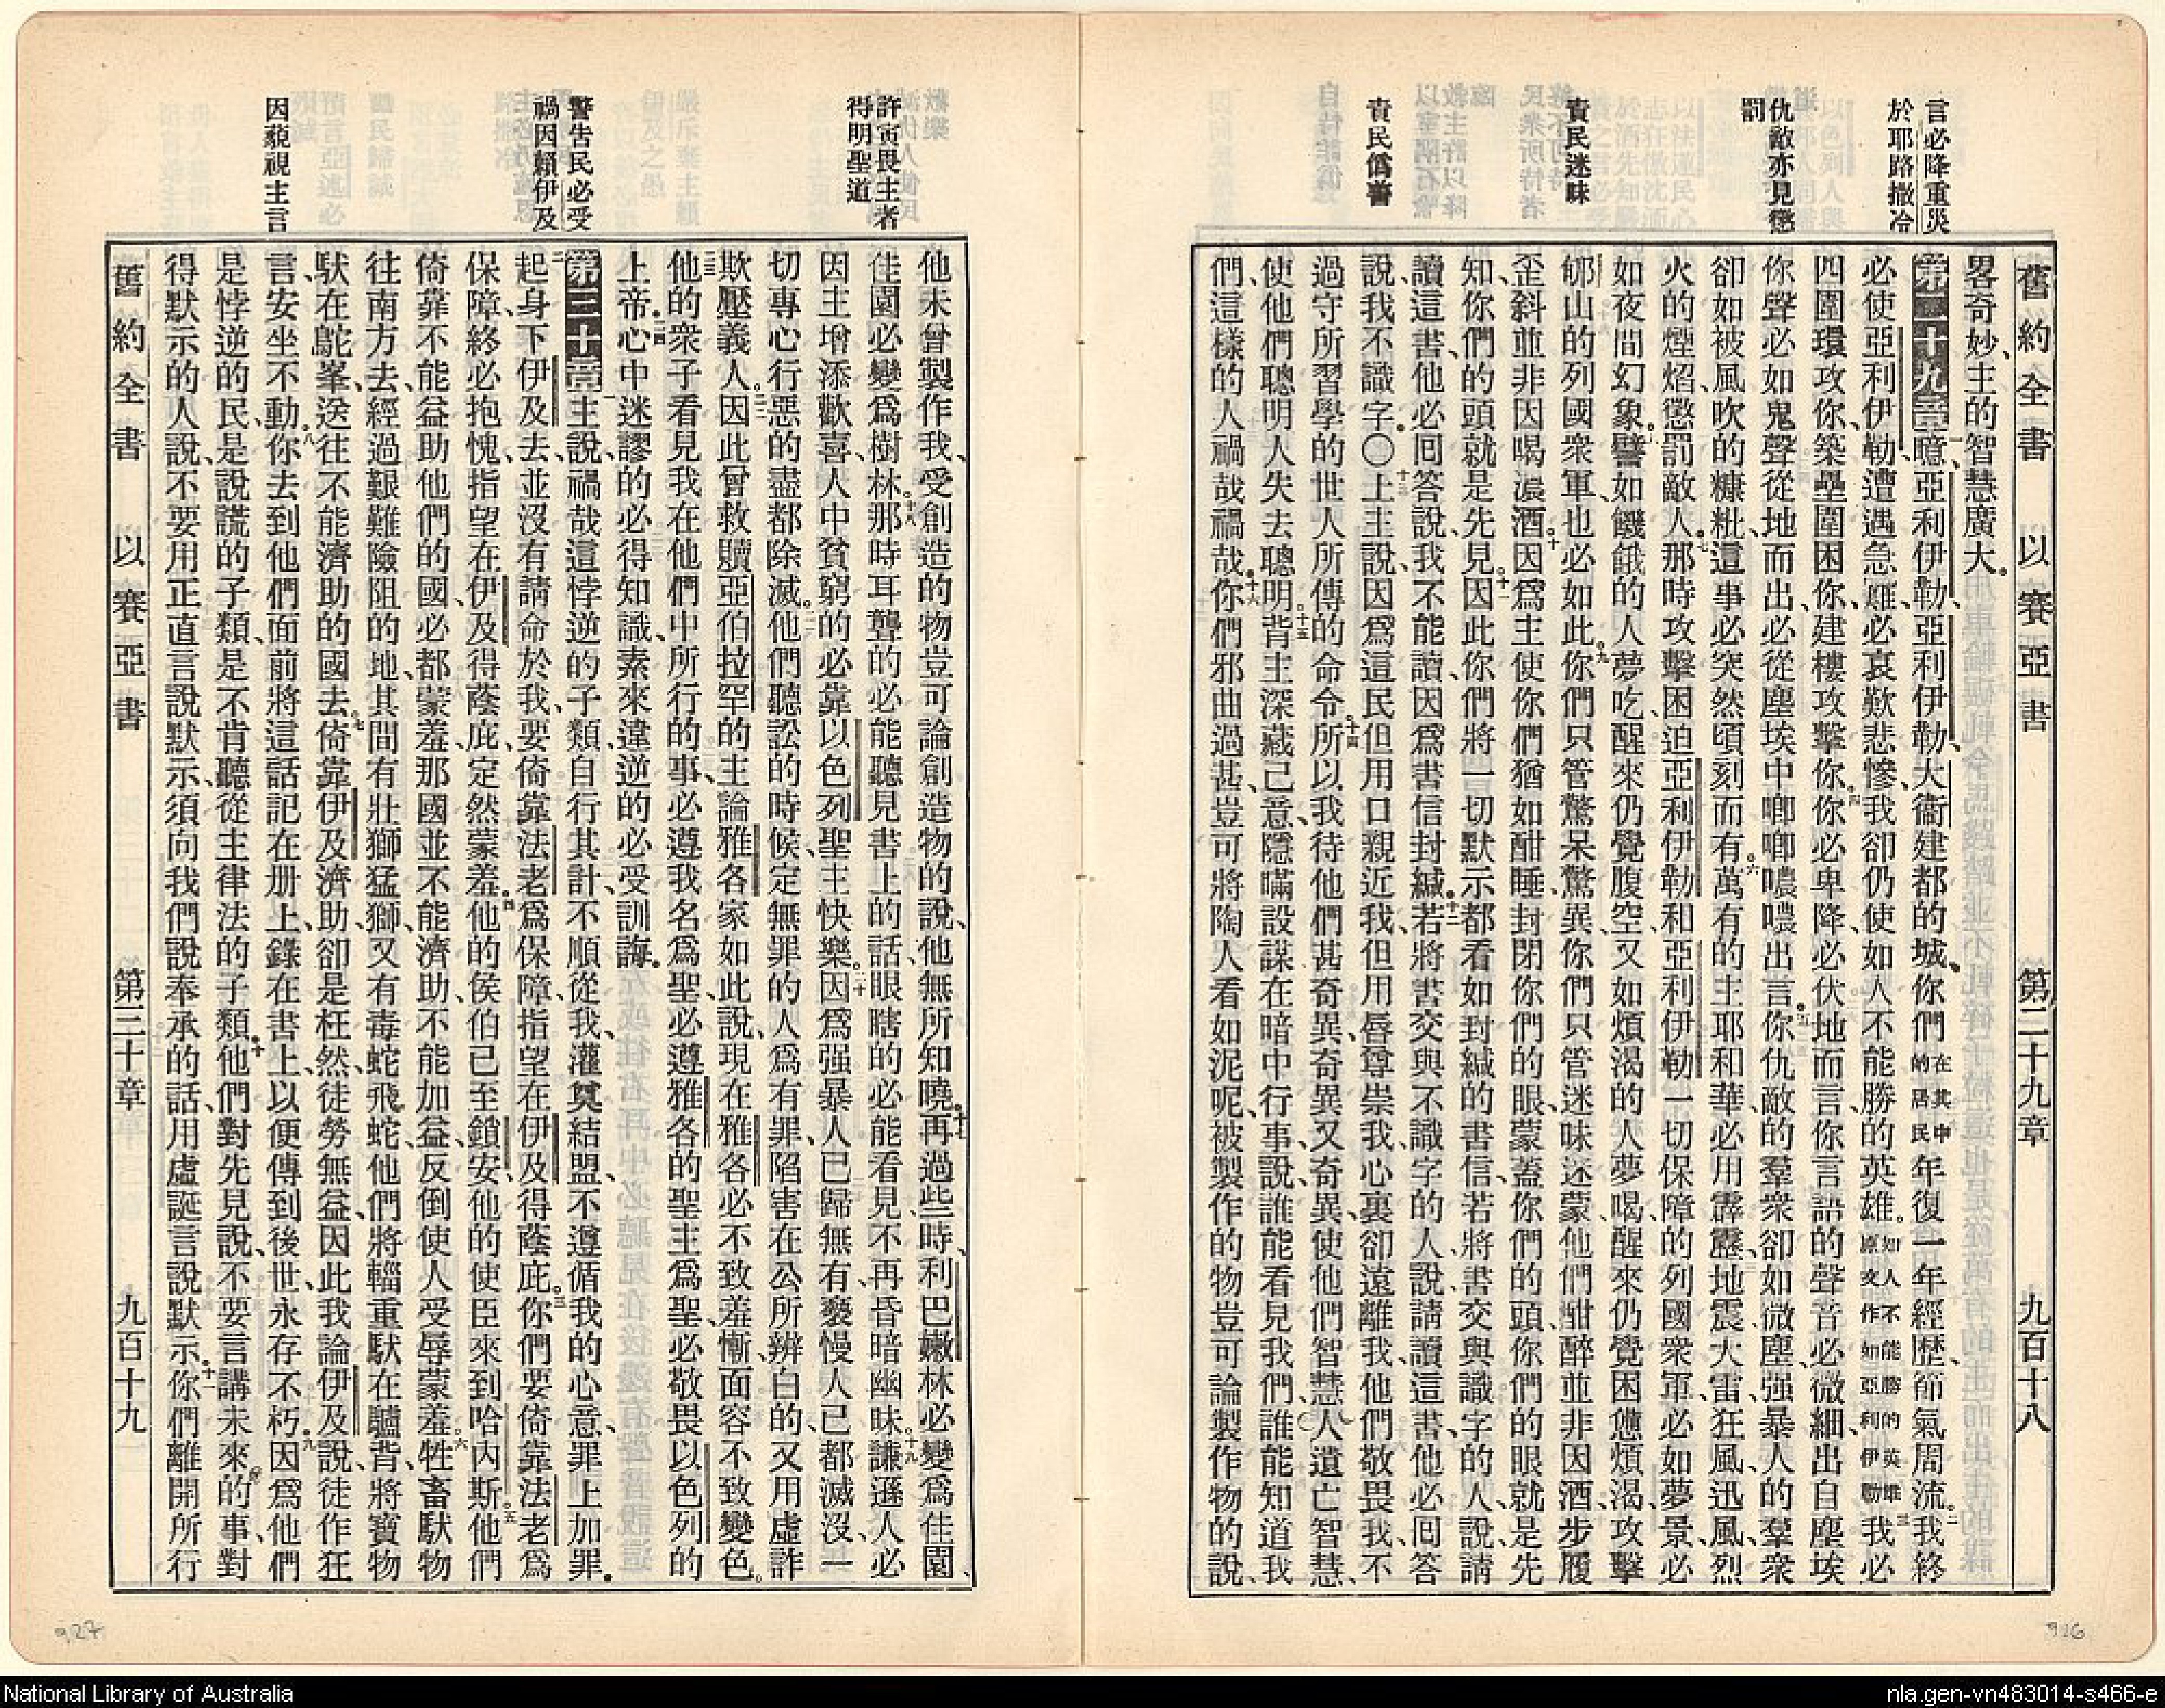 言必降重災
於耶路撒冷
仇敵亦見懲
罰
責民迷昧
責民僞善
舊約全書 以賽亞書 第二十九章 九百十八
畧奇妙、主的智慧廣大。
第二十九章 一噫、亞利伊勒、亞利伊勒、大衞建都的城、你們在其中的居民年復一年、經歷節氣周流。二我終
必使亞利伊勒遭遇急難、必哀歎悲慘、我卻仍使如人不能勝的英雄。如人不能勝的英雄原文作如亞利伊勒三我必
四圍環攻你、築壘圍困你、建樓攻擊你。四你必卑降、必伏地而言、你言語的聲音必微細、出自塵埃、
你聲必如鬼聲從地而出、必從塵埃中唧唧噥噥出言。五你仇敵的羣衆卻如微塵、强暴人的羣衆
卻如被風吹的糠粃、這事必突然頃刻而有。六萬有的主耶和華、必用霹靂、地震、大雷、狂風、迅風、烈
火的煙焰、懲罰敵人。七那時攻擊困迫亞利伊勒、和亞利伊勒一切保障的列國衆軍、必如夢景、必
如夜間幻象。八譬如饑餓的人夢吃、醒來仍覺腹空、又如煩渴的人夢喝、醒來仍覺困憊煩渴、攻擊
郇山的列國衆軍、也必如此。九你們只管驚呆驚異、你們只管迷昧迷蒙、他們酣醉並非因酒、步履
歪斜、並非因喝濃酒。十因爲主使你們猶如酣睡、封閉你們的眼、蒙蓋你們的頭、你們的眼就是先
知、你們的頭就是先見。十一因此你們將一切默示、都看如封緘的書信、若將書交與識字的人、說、請
讀這書、他必回答說、我不能讀、因爲書信封緘。十二若將書交與不識字的人、說、請讀這書、他必回答
說、我不識字。〇十三上主說、因爲這民但用口親近我、但用唇尊崇我、心裏卻遠離我、他們敬畏我、不
過守所習學的世人所傳的命令。十四所以我待他們甚奇異、奇異又奇異、使他們智慧人遺亡智慧、
使他們聰明人失去聰明。十五背主深藏己意、隱瞞設謀、在暗中行事、說、誰能看見我們、誰能知道我
們、這樣的人禍哉禍哉。十六你們邪曲過甚、豈可將陶人看如泥呢、被製作的物、豈可論製作物的說、
許寅畏主者
得明聖道
警告民必受
禍因賴伊及
因藐視主言
他未曾製作我、受創造的物、豈可論創造物的說、他無所知曉。十七再過些時、利巴嫩林必變爲佳園、
佳園必變爲樹林。十八那時耳聾的必能聽見書上的話、眼瞎的必能看見、不再昏暗幽昧。十九謙遜人必
因主增添歡喜、人中貧窮的必靠以色列聖主快樂。二十因爲强暴人已歸無有、褻慢人已都滅沒、一
切專心行惡的盡都除滅。二一他們聽訟的時候、定無罪的人爲有罪、陷害在公所辨白的、又用虛詐
欺壓義人。二二因此曾救贖亞伯拉罕的主、論雅各家如此說、現在雅各必不致羞慚、面容不致變色。
二三他的衆子看見我在他們中所行的事、必遵我名爲聖、必遵雅各的聖主爲聖、必敬畏以色列的
上帝。二四心中迷謬的必得知識、素來違逆的必受訓誨。
第三十章 一主說、禍哉這悖逆的子類、自行其計、不順從我、灌奠結盟、不遵循我的心意、罪上加罪。
二起身下伊及去、並沒有請命於我、要倚靠法老爲保障、指望在伊及得蔭庇。三你們要倚靠法老爲
保障、終必抱愧、指望在伊及得蔭庇、定然蒙羞。四他的侯伯已至鎖安、他的使臣來到哈內斯。五他們
倚靠不能益助他們的國、必都蒙羞、那國並不能濟助、不能加益、反倒使人受辱蒙羞。六牲畜馱物
往南方去、經過艱難險阻的地、其間有壯獅、猛獅、又有毒蛇、飛蛇、他們將輜重馱在驢背、將寶物
馱在駝峯、送往不能濟助的國去。七倚靠伊及濟助、卻是枉然、徒勞無益、因此我論伊及說、徒作狂
言、安坐不動。八你去到他們面前、將這話記在册上、錄在書上、以便傳到後世、永存不朽。九因爲他們
是悖逆的民、是說謊的子類、是不肯聽從主律法的子類。十他們對先見說、不要言講未來的事、對
得默示的人說、不要用正直言說默示、須向我們說奉承的話、用虛誕言說默示。十一你們離開所行
舊約全書 以賽亞書 第三十章 九百十九
927
926
National Library of Australia
nla.gen-vn483014-s466-e